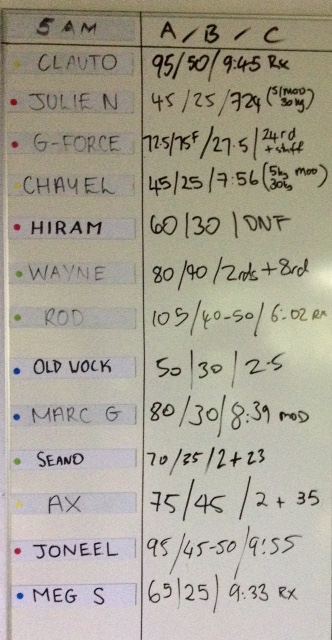 5 AM A / B / C
CLAUTO 95/50/9:45 Rx
JULIE N 45/25/724 (5 (moo) 30kg)
G-FORCE 72.5/75F/27.5/24rd + stuff
CHAYEL 45/25/7:56 (5kg moo) 30kg
HIRAM 60/30/DNF
WAYNE 80/40/2rds + 8rd
ROD 105/40-50/6:02 Rx
OLD VOCK 50/30/2.5
MARC G 80/30/8:39 MOD
SEANO 70/35/2+23
AX 75/45/2 + 35
JONEEL 95/45-50/9:55
MEG S 65/25/9:33 RX